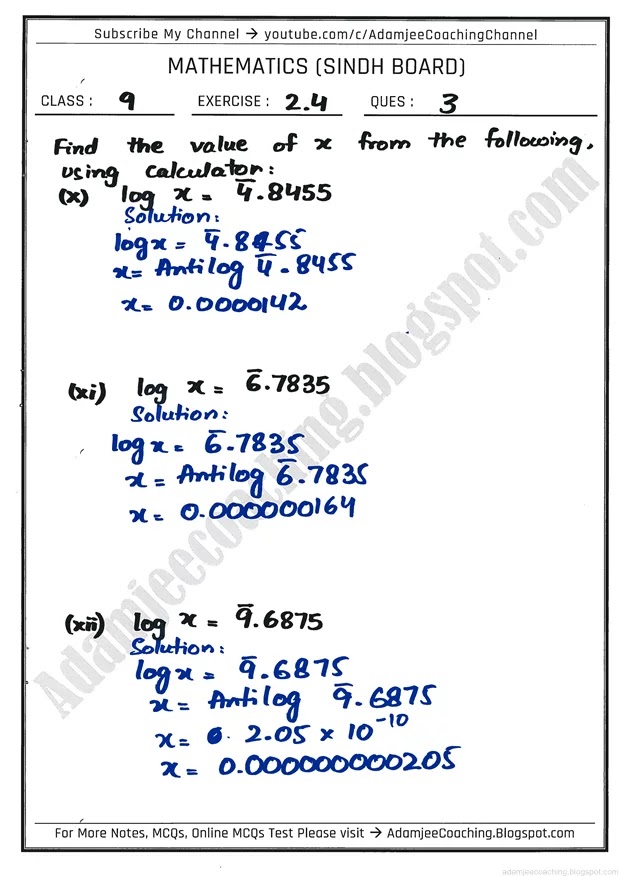 Subscribe My Channel → youtube.com/c/AdamjeeCoachingChannel
MATHEMATICS (SINDH BOARD)
CLASS : 9 EXERCISE : 2.4 QUES : 3
Find the value of x from the following,
using calculator:
(x) log x = 4̅.8455
Solution:
log x = 4̅.8455
x = Antilog 4̅.8455
x = 0.0000142
(xi) log x = 6̅.7835
Solution:
log x = 6̅.7835
x = Antilog 6̅.7835
x = 0.000000164
(xii) log x = 9̅.6875
Solution:
log x = 9̅.6875
x = Antilog 9̅.6875
x = 2.05 × 10⁻¹⁰
x = 0.000000000205
Adamjeecoaching.blogspot.com
For More Notes, MCQs, Online MCQs Test Please visit → AdamjeeCoaching.Blogspot.com
adamjeecoaching.blogspot.com